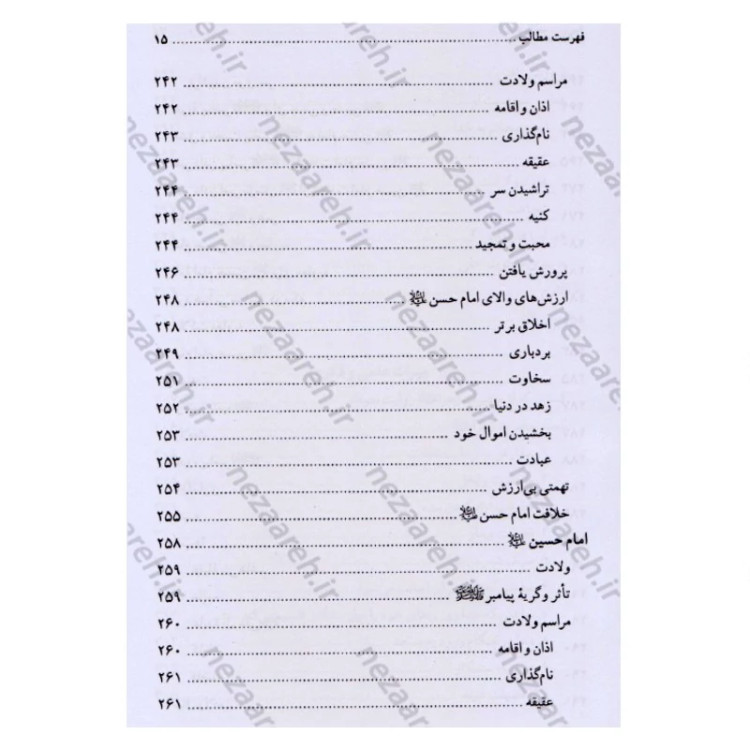 فهرست مطالب ........ ۱۵
مراسم ولادت ........ ۲۴۲
اذان و اقامه ........ ۲۴۲
نام‌گذاری ........ ۲۴۳
عقیقه ........ ۲۴۳
تراشیدن سر ........ ۲۴۴
کنیه ........ ۲۴۴
محبت و تمجید ........ ۲۴۴
پرورش یافتن ........ ۲۴۶
ارزش‌های والای امام حسن ........ ۲۴۸
اخلاق برتر ........ ۲۴۸
بردباری ........ ۲۴۹
سخاوت ........ ۲۵۱
زهد در دنیا ........ ۲۵۲
بخشیدن اموال خود ........ ۲۵۳
عبادت ........ ۲۵۳
تهمتی بی‌ارزش ........ ۲۵۴
خلافت امام حسن ........ ۲۵۵
امام حسین ........ ۲۵۸
ولادت ........ ۲۵۹
تأثر و گریهٔ پیامبر ﷺ ........ ۲۵۹
مراسم ولادت ........ ۲۶۰
اذان و اقامه ........ ۲۶۰
نام‌گذاری ........ ۲۶۱
عقیقه ........ ۲۶۱
nezaareh.ir